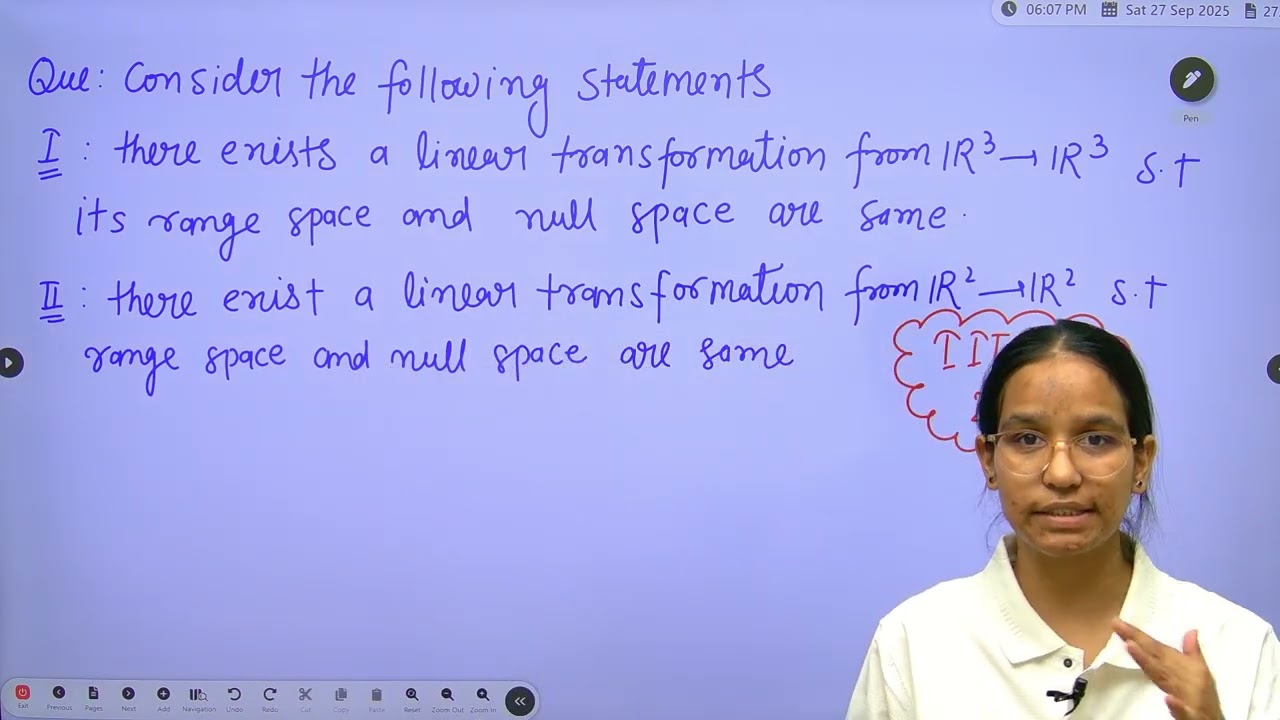 06:07 PM Sat 27 Sep 2025 27
Que: Consider the following statements
Pen
I : there exists a linear transformation from IR³ → IR³ s.t
its range space and null space are same.
II : there exist a linear transformation from IR² → IR² s.t
range space and null space are same
Exit Previous Pages Next Add Navigation Undo Redo Cut Copy Paste Reset Zoom Out Zoom In